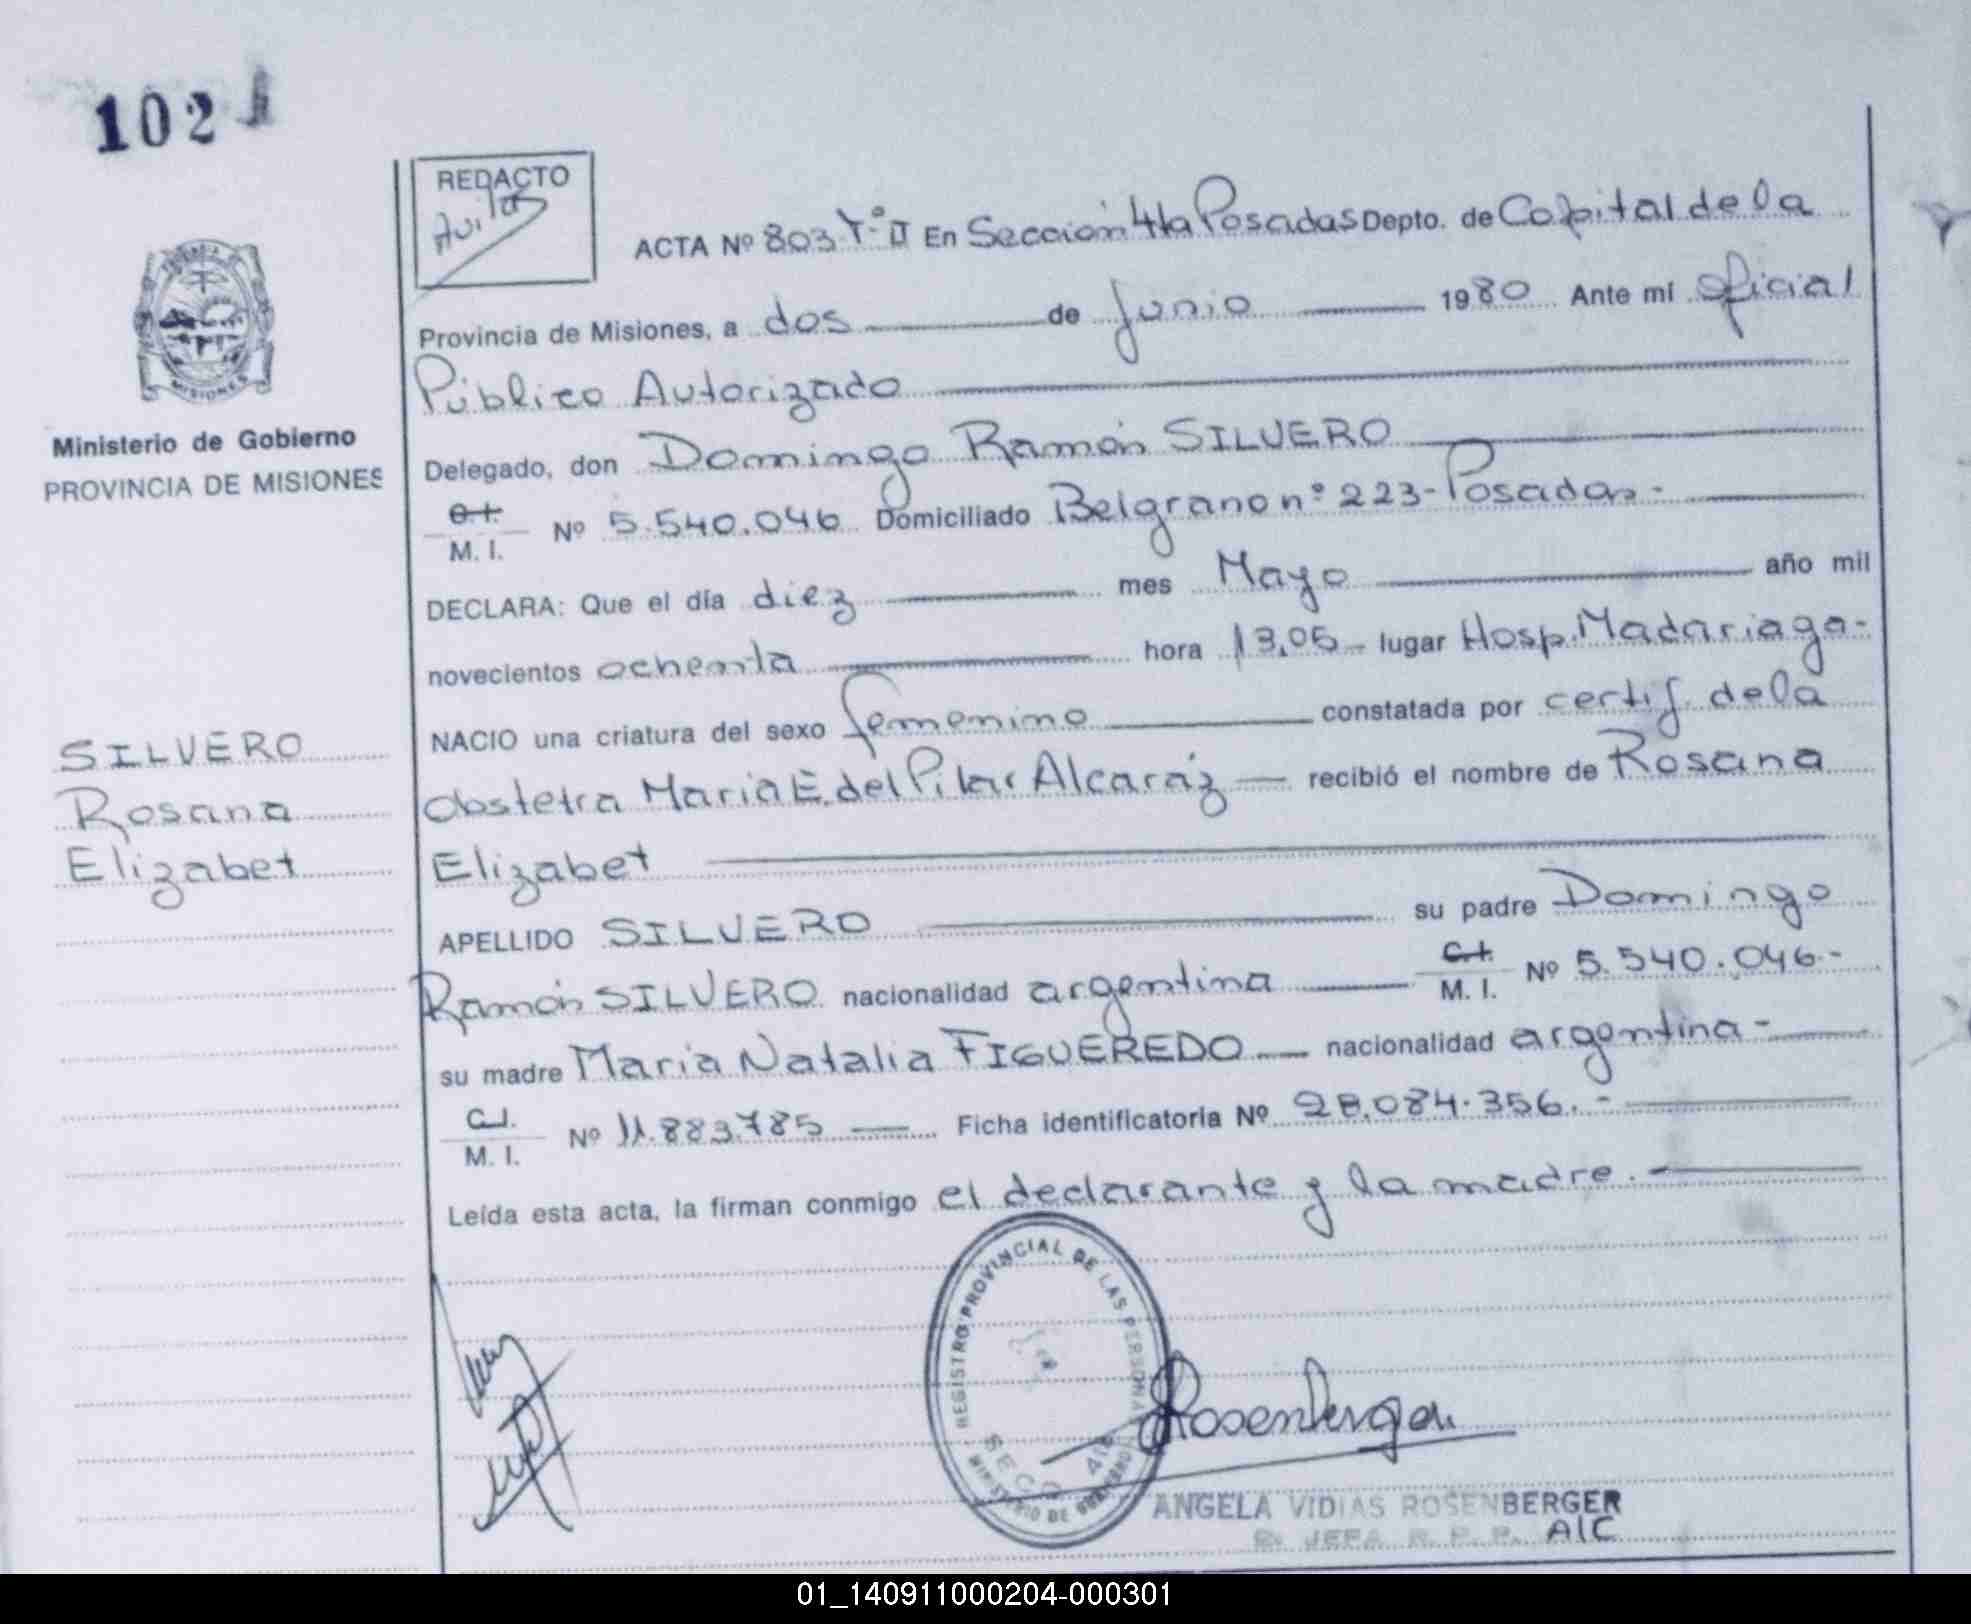 102
REDACTO
Avila
ACTA Nº 803 Tº II En Sección 4ta Posadas Depto. de Capital de la
Provincia de Misiones, a dos de Junio 1980 Ante mí oficial
Público Autorizado
Delegado, don Domingo Ramón SILVERO
C.I.
M. I. Nº 5.540.046 Domiciliado Belgrano nº 223-Posadas-
DECLARA: Que el día diez mes Mayo año mil
novecientos ochenta hora 13,05- lugar Hosp. Madariaga-
NACIO una criatura del sexo femenino constatada por certif. de la
obstetra Maria E. del Pilar Alcaráz recibió el nombre de Rosana
Elizabet
APELLIDO SILVERO su padre Domingo
Ramón SILVERO nacionalidad argentina C.I. M. I. Nº 5.540.046.-
su madre María Natalia FIGUEREDO nacionalidad argentina-
C.I.
M. I. Nº 11.883.785 Ficha identificatoria Nº 28.084.356.-
Leída esta acta, la firman conmigo el declarante y la madre.-
MISIONES
Ministerio de Gobierno
PROVINCIA DE MISIONES
SILVERO
Rosana
Elizabet
REGISTRO PROVINCIAL DE LAS PERSONAS
SECC. 4ta
MINISTERIO DE GOBIERNO
Rosenberger
ANGELA VIDIAS ROSENBERGER
JEFA R. P. P. A/C
01_140911000204-000301